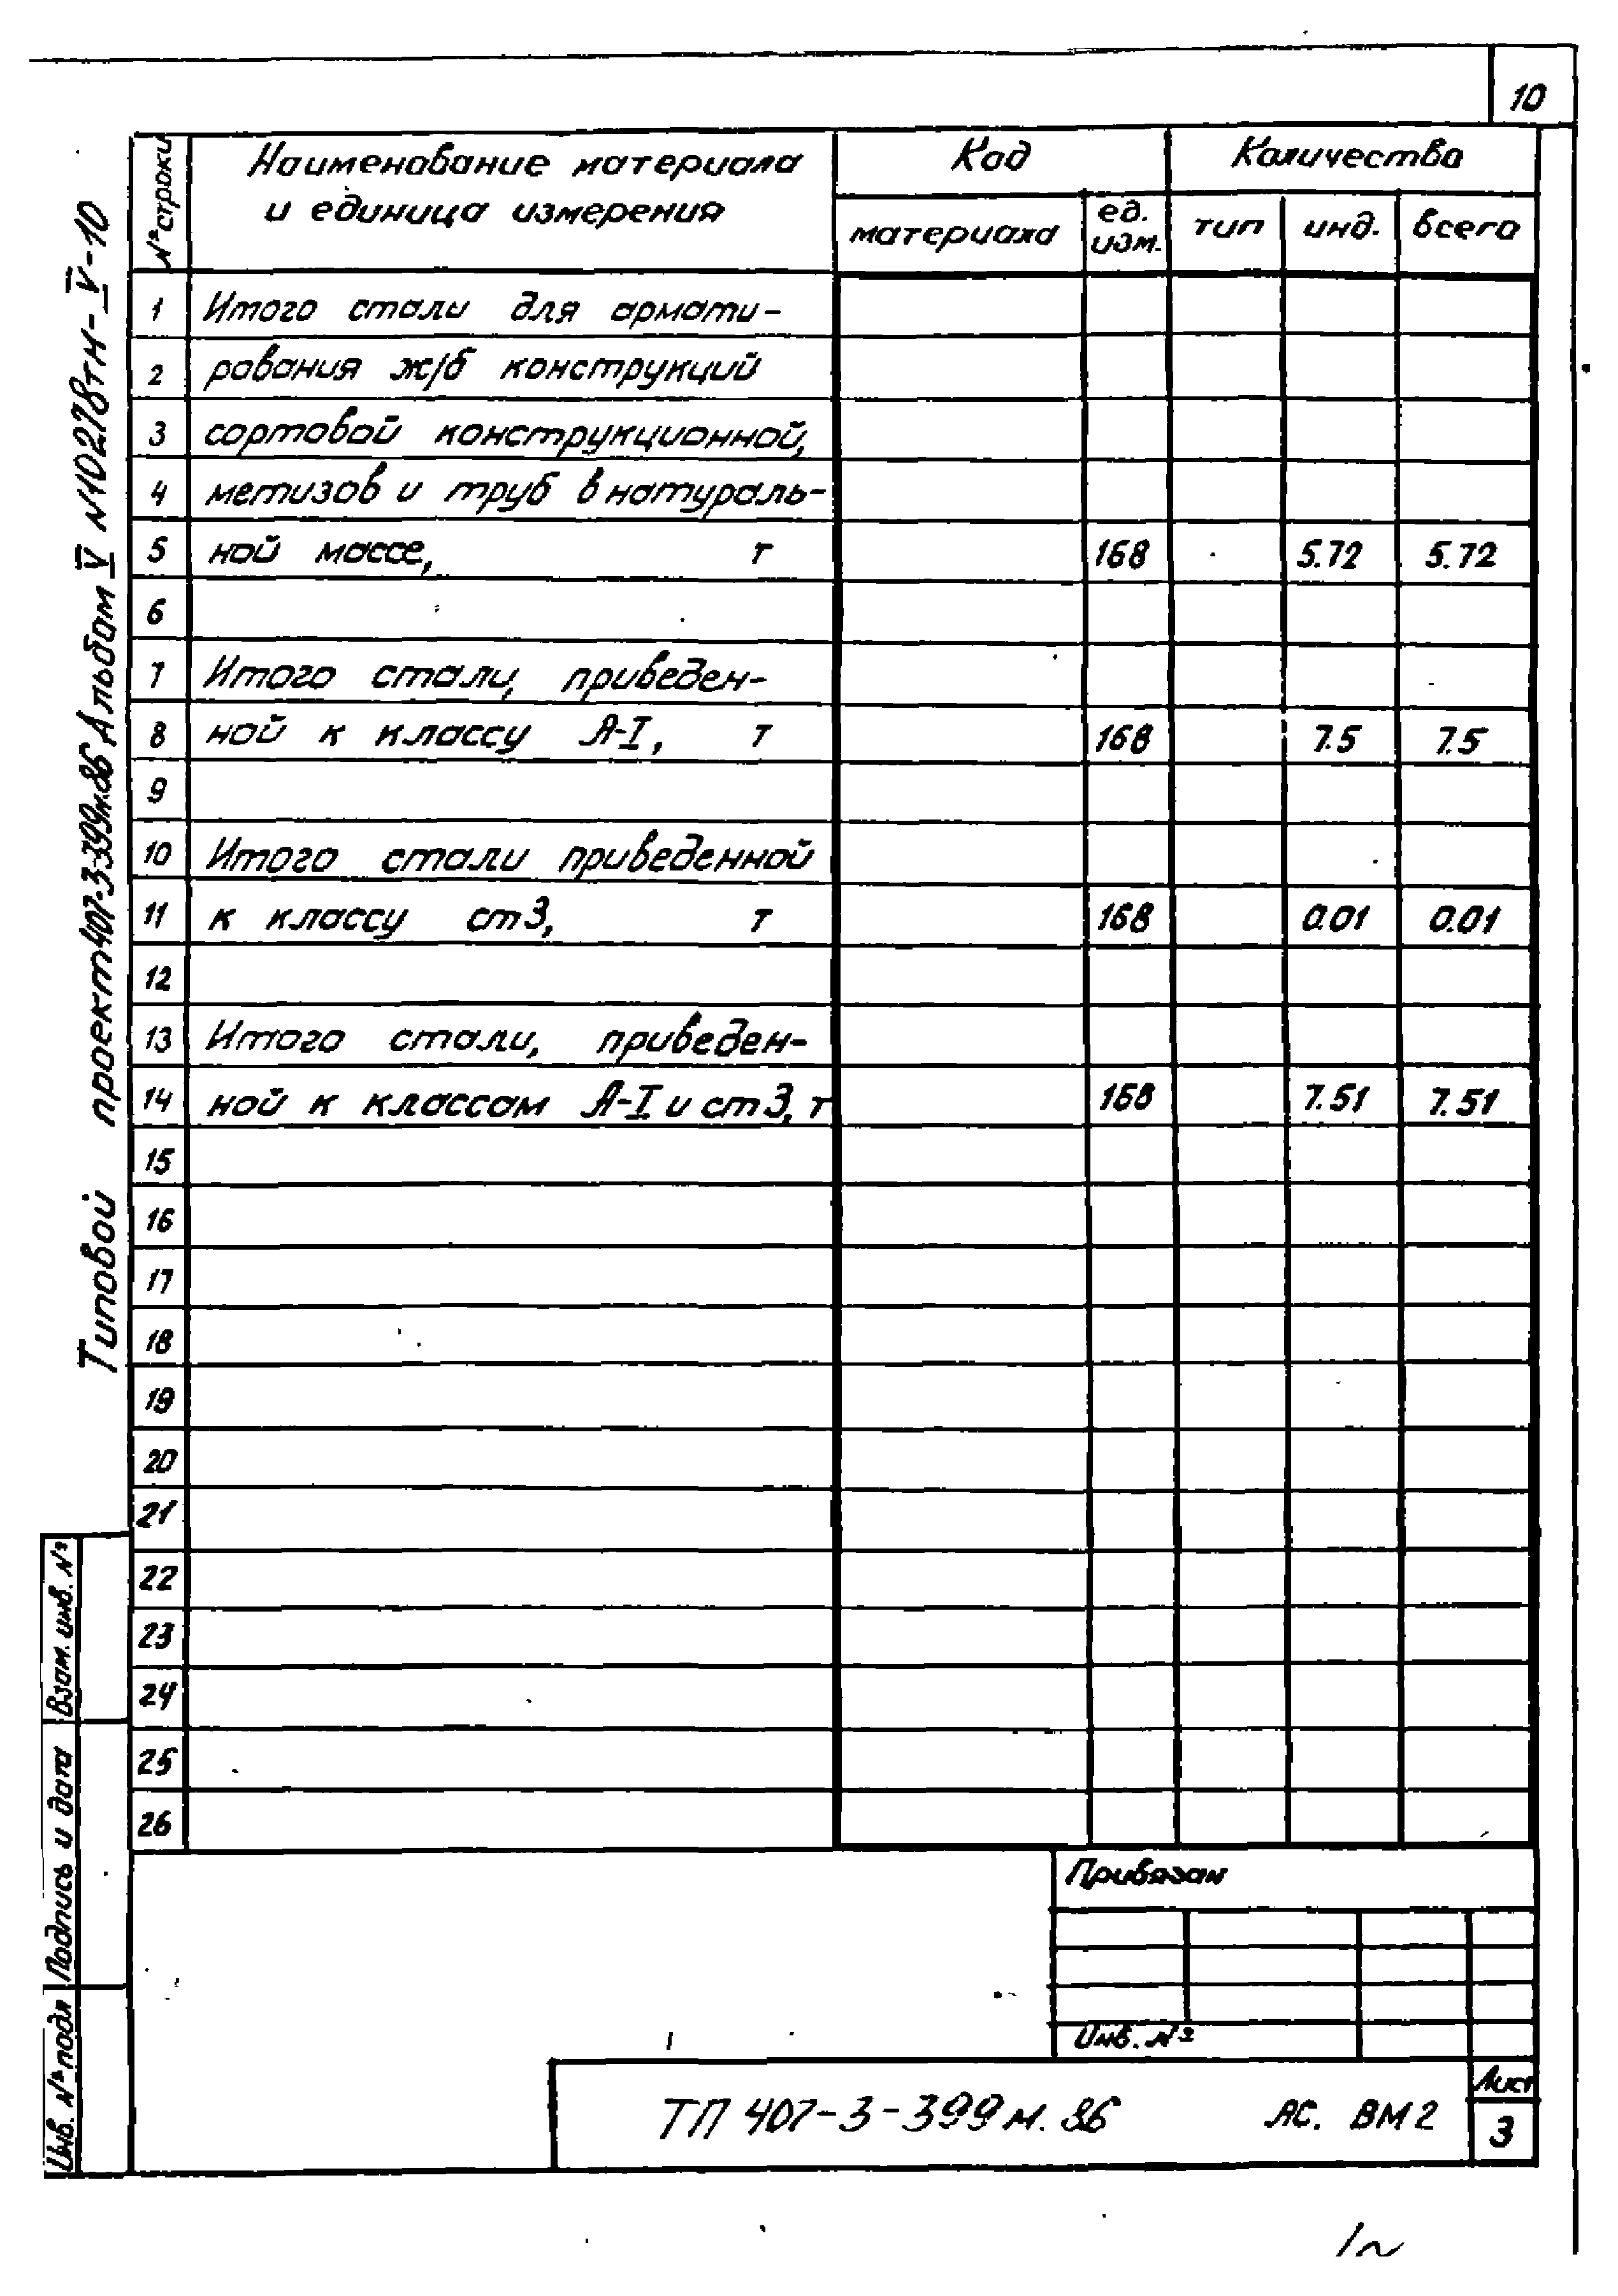 10
№ строки
Наименование материала
и единица измерения
Код
Количество
материала
ед.
изм.
тип
инд.
всего
1 Итого стали для армати-
2 рования ж/б конструкций
3 сортовой конструкционной,
4 метизов и труб в натураль-
5 ной массе, т 168 5.72 5.72
6
7 Итого стали, приведен-
8 ной к классу А-I, т 168 7.5 7.5
9
10 Итого стали приведенной
11 к классу ст3, т 168 0.01 0.01
12
13 Итого стали, приведен-
14 ной к классам А-I и ст3, т 168 7.51 7.51
15
16
17
18
19
20
21
22
23
24
25
26
Типовой проект 407-3-399м.86 Альбом V №10278тм-V-10
Взам. инв. №
Подпись и дата
Инв. № подл
Привязан
Инв. №
ТП 407-3-399м.86 АС. ВМ2
Лист
3